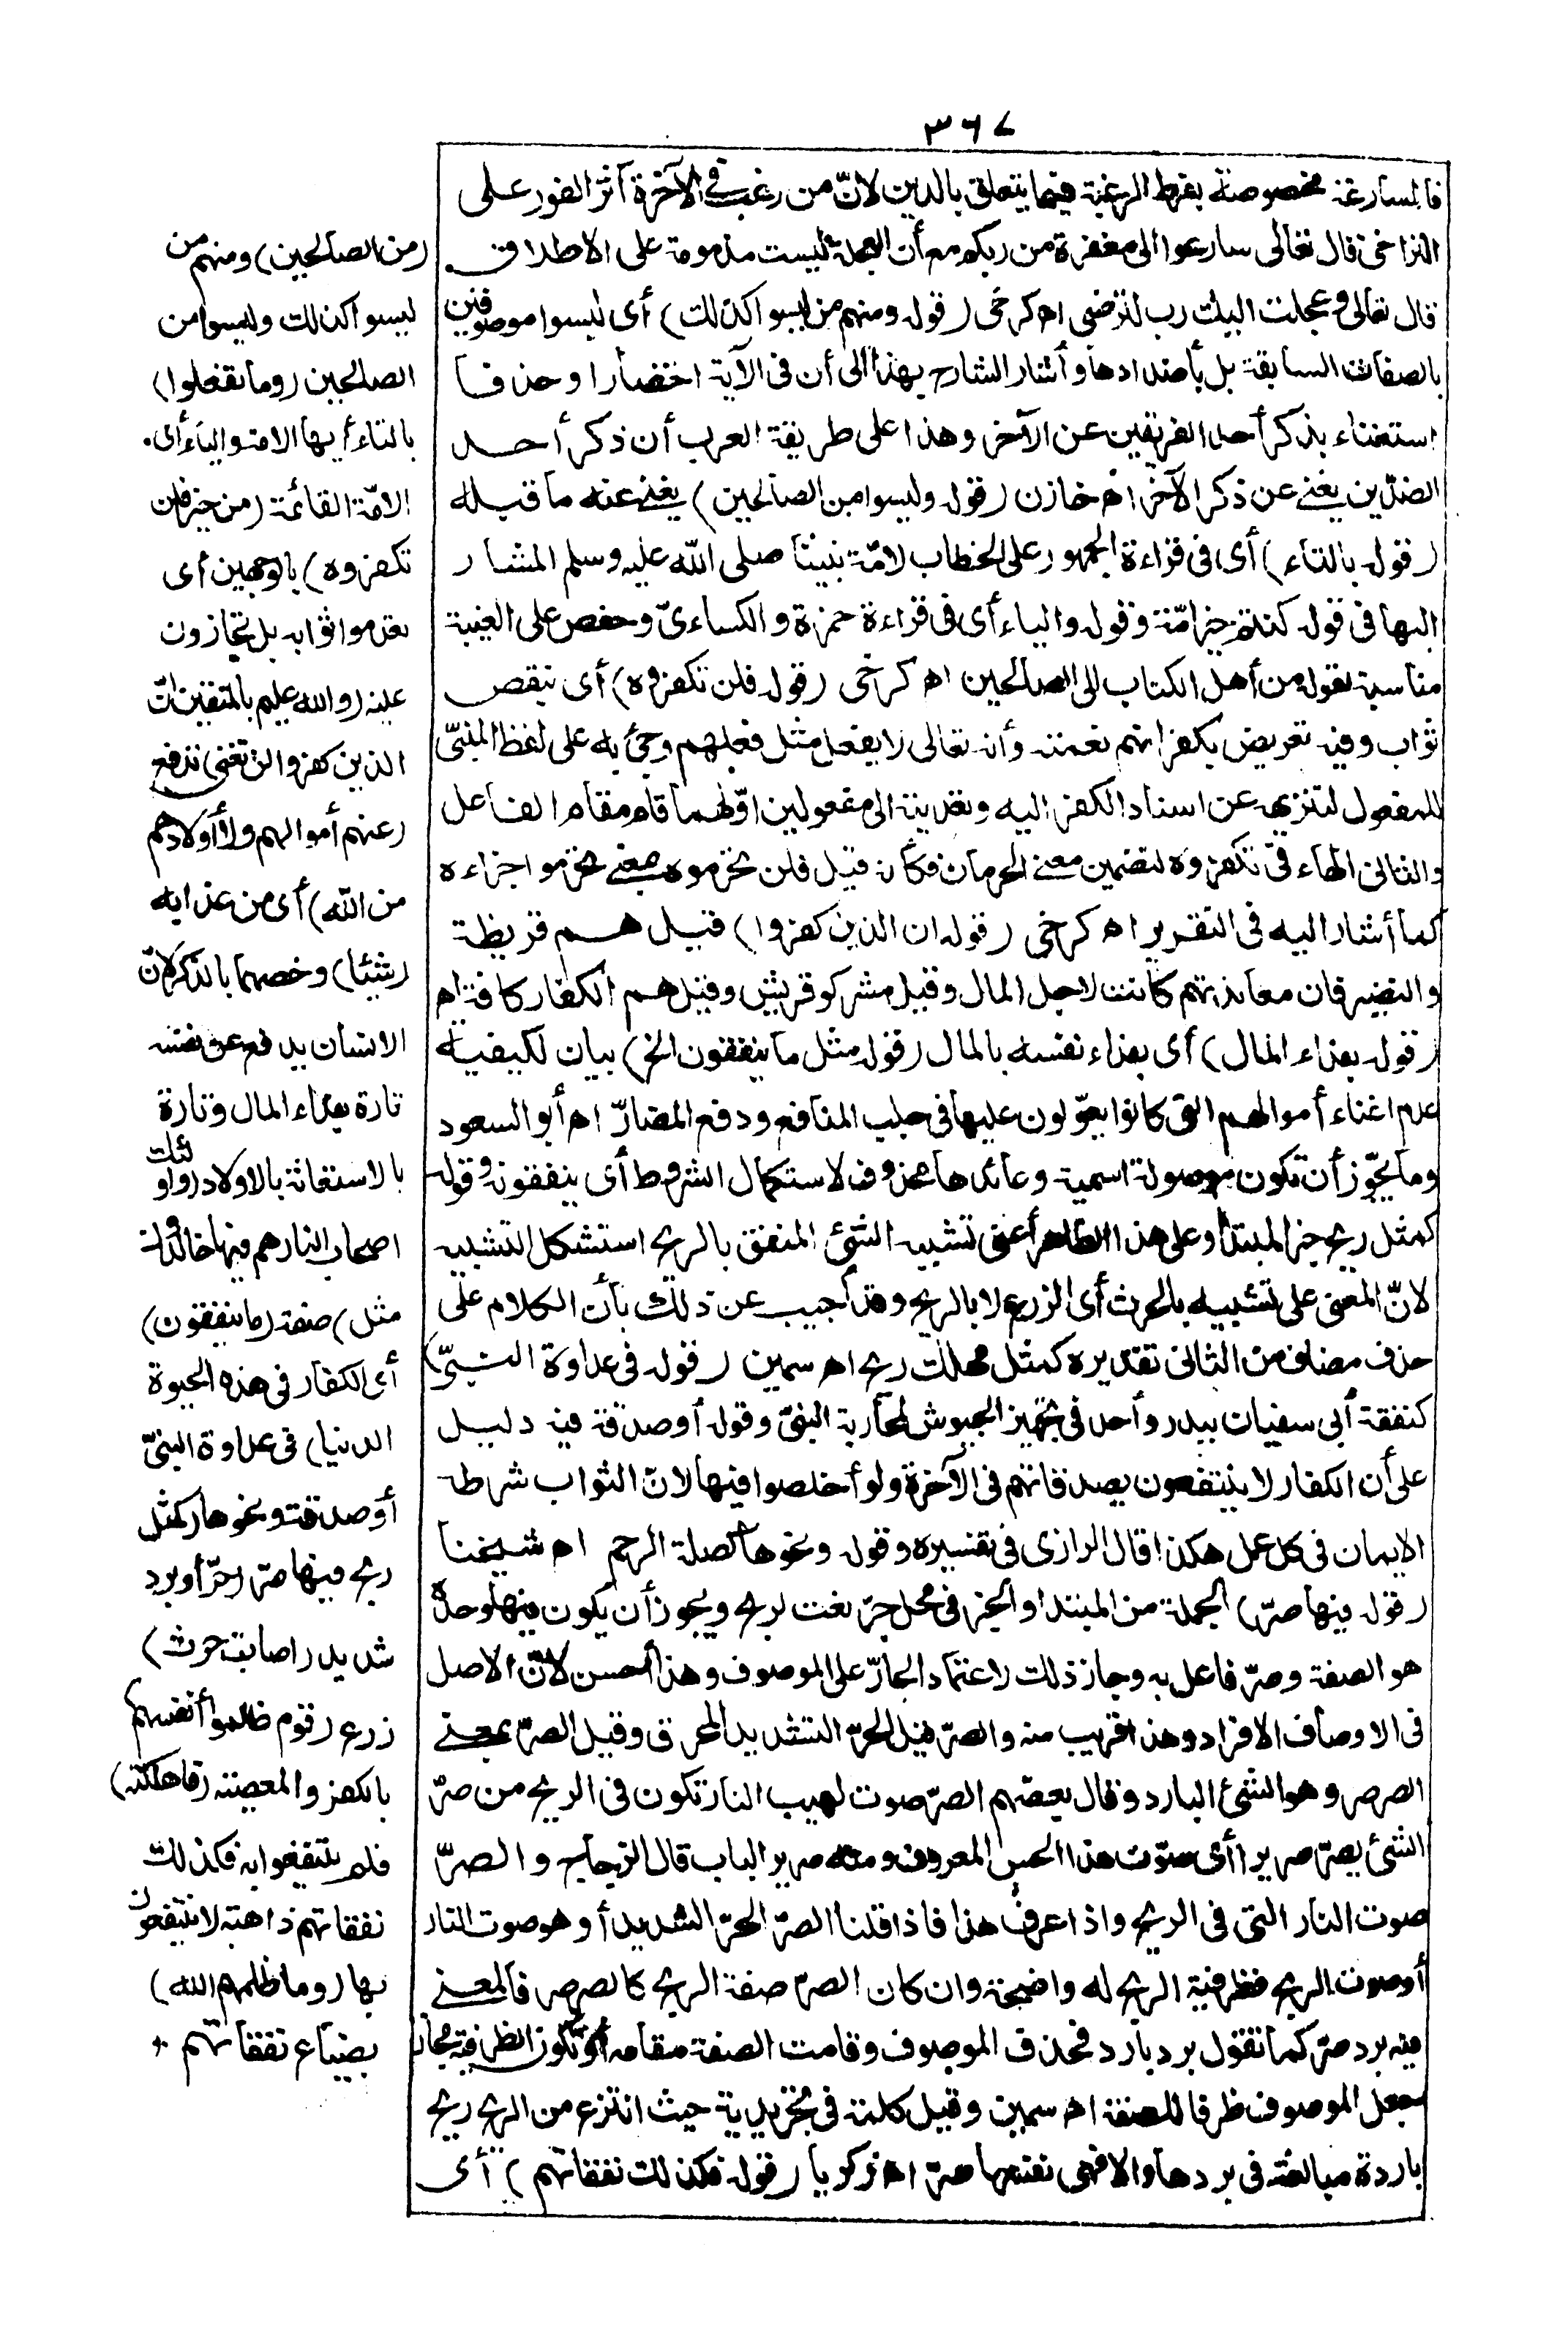 ٣٦٧
فالمسارعة مخصوصة بفرط الرغبة فيما يتعلق بالدين لانّ من رغب في الآخرة آثر الفور على
التراخى قال تعالى سارعوا الى مغفرة من ربكم مع أن العجلة ليست مذمومة على الاطلاق
قال تعالى وعجلت اليك رب لترضى اه كرخى (قوله ومنهم من ليسوا كذلك) أى ليسوا موصوفين
بالصفات السابقة بل بأضدادها وأشار الشارح بهذا الى أن فى الآية اختصارا وحذفا
استغناء بذكر أحد الفريقين عن الآخر وهذا على طريقة العرب أن ذكر أحد
الضدّين يغنى عن ذكر الآخر اه خازن (قوله وليسوا من الصالحين) يغنى عنه ما قبله
(قوله بالتاء) أى فى قراءة الجمهور على الخطاب لامّة نبينا صلى الله عليه وسلم المشار
اليها فى قوله كنتم خير امّة وقوله والياء أى فى قراءة حمزة والكساءىّ وحفص على الغيبة
مناسبة لقوله من أهل الكتاب الى الصالحين اه كرخى (قوله فلن تكفروه) أى ينقص
ثوابه وفيه تعريض بكفرانهم نعمته وأنه تعالى لا يفعل مثل فعلهم وجئ به على لفظ المبنىّ
للمفعول لتنزيهه عن اسناد الكفر اليه وتعديته الى مفعولين اوّلهما قام مقام الفاعل
والثانى الهاء فى تكفروه لتضمين معنى الحرمان فكأنه قيل فلن تحرموه بمعنى تحرموا جزاءه
كما أشار اليه فى التقرير اه كرخى (قوله ان الذين كفروا) قيل هم قريظة
والنضير فان معاندتهم كانت لاجل المال وقيل مشركو قريش وقيل هم الكفار كافة اه
(قوله بفداء المال) أى بفداء نفسه بالمال (قوله مثل ما ينفقون الخ) بيان لكيفية
عدم اغناء أموالهم التى كانوا يعوّلون عليها فى جلب المنافع ودفع المضارّ اه أبو السعود
وما يجوّز أن تكون موصولة اسمية وعائدها محذوف لاستكمال الشروط أى ينفقونه وقوله
كمثل ريح خبر المبتدأ وعلى هذا الظاهر أعنى تشبيه الشئ المنفق بالريح استشكل التشبيه
لانّ المعنى على تشبيهه بالحرث أى الزرع لا بالريح وقد أجيب عن ذلك بأن الكلام على
حذف مضاف من الثانى تقديره كمثل مهلك ريح اه سمين (قوله فى عداوة النبىّ)
كنفقة أبى سفيان ببدر وأحد فى تجهيز الجيوش لمحاربة النبىّ وقوله أوصدقة فيه دليل
على أن الكفار لا ينتفعون بصدقاتهم فى الآخرة ولو أخلصوا فيها لانّ الثواب شرطه
الايمان فى كل عمل هكذا قال الرازى فى تفسيره وقوله ونحوها كصلة الرحم اه شيخنا
(قوله فيها صرّ) الجملة من المبتدا والخبر فى محل جرّ نعت لريح ويجوز أن يكون فيها وحده
هو الصفة وصرّ فاعل به وجاز ذلك لاعتماد الجارّ على الموصوف وهذا أحسن لانّ الاصل
فى الاوصاف الافراد وهذا قريب منه والصرّ قيل الحرّ الشديد المحرق وقيل الصرّ بمعنى
الصرصر وهو الشئ البارد وقال بعضهم الصرّ صوت لهيب النار تكون فى الريح من صرّ
الشئ يصرّ صريرا أى صوّت هذا الحس المعروف ومنه صرير الباب قال الزجاج والصرّ
صوت النار التى فى الريح واذا عرف هذا فاذا قلنا الصرّ الحرّ الشديد أو هو صوت النار
أو صوت الريح فظرفية الريح له واضحة وان كان الصرّ صفة الريح كالصرصر فالمعنى
فيه برد صرّ كما تقول برد بارد فحذف الموصوف وقامت الصفة مقامه أو تكون الظرفية مجازا
بجعل الموصوف ظرفا للصفة اه سمين وقيل كلمة فى تجريدية حيث انتزع من الريح ريح
باردة مبالغة فى بردها والا فهى نفسها صرّ اه زكريا (قوله فكذلك نفقاتهم) أى
(من الصالحين) ومنهم من
ليسوا كذلك وليسوا من
الصالحين (وما تفعلوا)
بالتاء أيها الامة والياء أى
الامّة القائمة (من خير فلن
تكفروه) بالوجهين أى
تعدموا ثوابه بل تجازون
عليه (والله عليم بالمتقين انّ
الذين كفروا لن تغنى تدفع
(عنهم أموالهم ولا أولادهم
من الله) أى من عذابه
(شيئا) وخصهما بالذكر لانّ
الانسان يدفع عن نفسه
تارة بفداء المال وتارة
بالاستعانة بالاولاد (واولئك
اصحاب النار هم فيها خالدون
مثل) صفة (ما ينفقون)
أى الكفار فى هذه الحيوة
الدنيا) فى عداوة النبىّ
أوصدقة ونحوها (كمثل
ريح فيها صرّ) حرّ أو برد
شديد (اصابت حرث)
زرع (قوم ظلموا أنفسهم)
بالكفر والمعصية (فاهلكته)
فلم ينتفعوا به فكذلك
نفقاتهم ذاهبة لا ينتفعون
بها (وما ظلمهم الله)
بضياع نفقاتهم